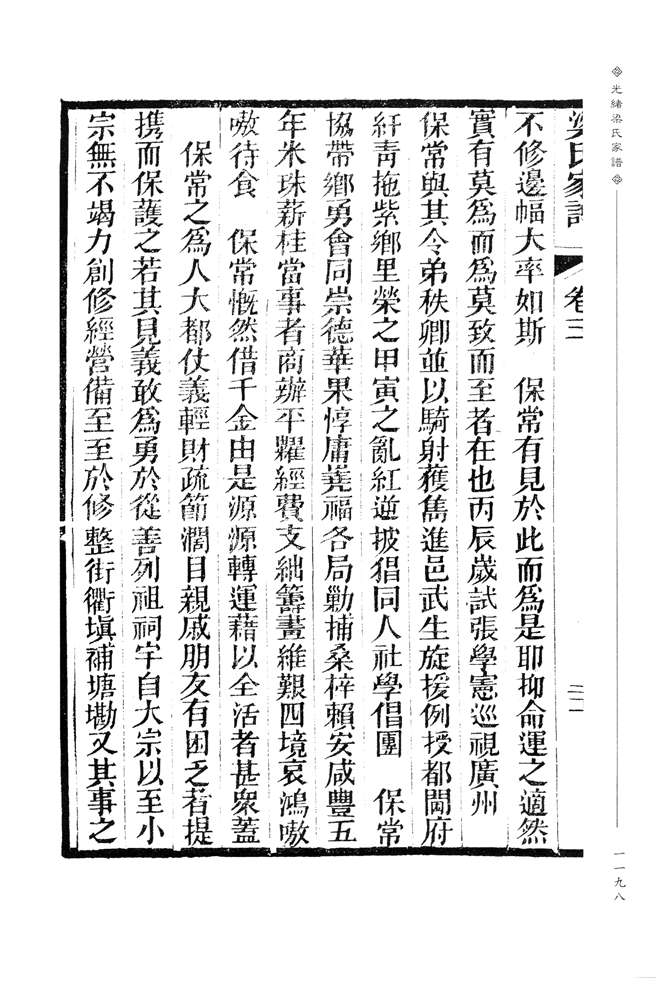 光緒梁氏家譜
一一九八
梁氏家譜 卷三
不修邊幅大率如斯 保常有見於此而爲是耶抑命運之適然
實有莫爲而爲莫致而至者在也丙辰歲試張學憲巡視廣州
保常與其令弟秩卿並以騎射獲雋進邑武生旋援例授都閫府
紆靑拖紫鄉里榮之甲寅之亂紅逆披猖同人社學倡團 保常
協帶鄉勇會同崇德華果惇庸蕘福各局勦捕桑梓賴安咸豐五
年米珠薪桂當事者商辦平糶經費支絀籌畫維艱四境哀鴻嗷
嗷待食 保常慨然借千金由是源源轉運藉以全活者甚衆蓋
保常之爲人大都仗義輕財疏節濶目親戚朋友有困乏者提
携而保護之若其見義敢爲勇於從善列祖祠宇自大宗以至小
宗無不竭力創修經營備至至於修整街衢塡補塘壆又其事之